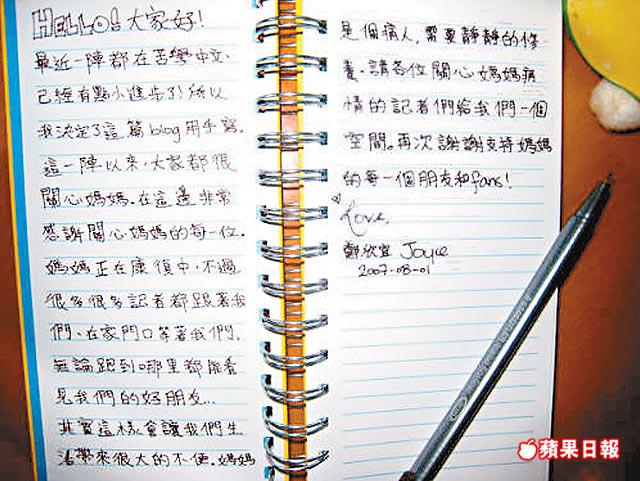 HELLO! 大家好!
最近一陣都在苦學中文,
已經有點小進步了!所以
我決定了這篇blog用手寫.
這一陣以來,大家都很
關心媽媽.在這邊非常
感謝關心媽媽的每一位.
媽媽正在康復中,不過
很多很多記者都跟著我
們、在家門口等著我們.
無論跟到哪里都能看
見我們的好朋友...
其實這樣會讓我們生
活帶來很大的不便.媽媽
是個病人,需要靜靜的修
養.請各位關心媽媽病
情的記者們給我們一個
空間。再次謝謝支持媽媽
的每一個朋友和fans!
Love,
鄭欣宜 Joyce
2007-08-01
蘋果日報